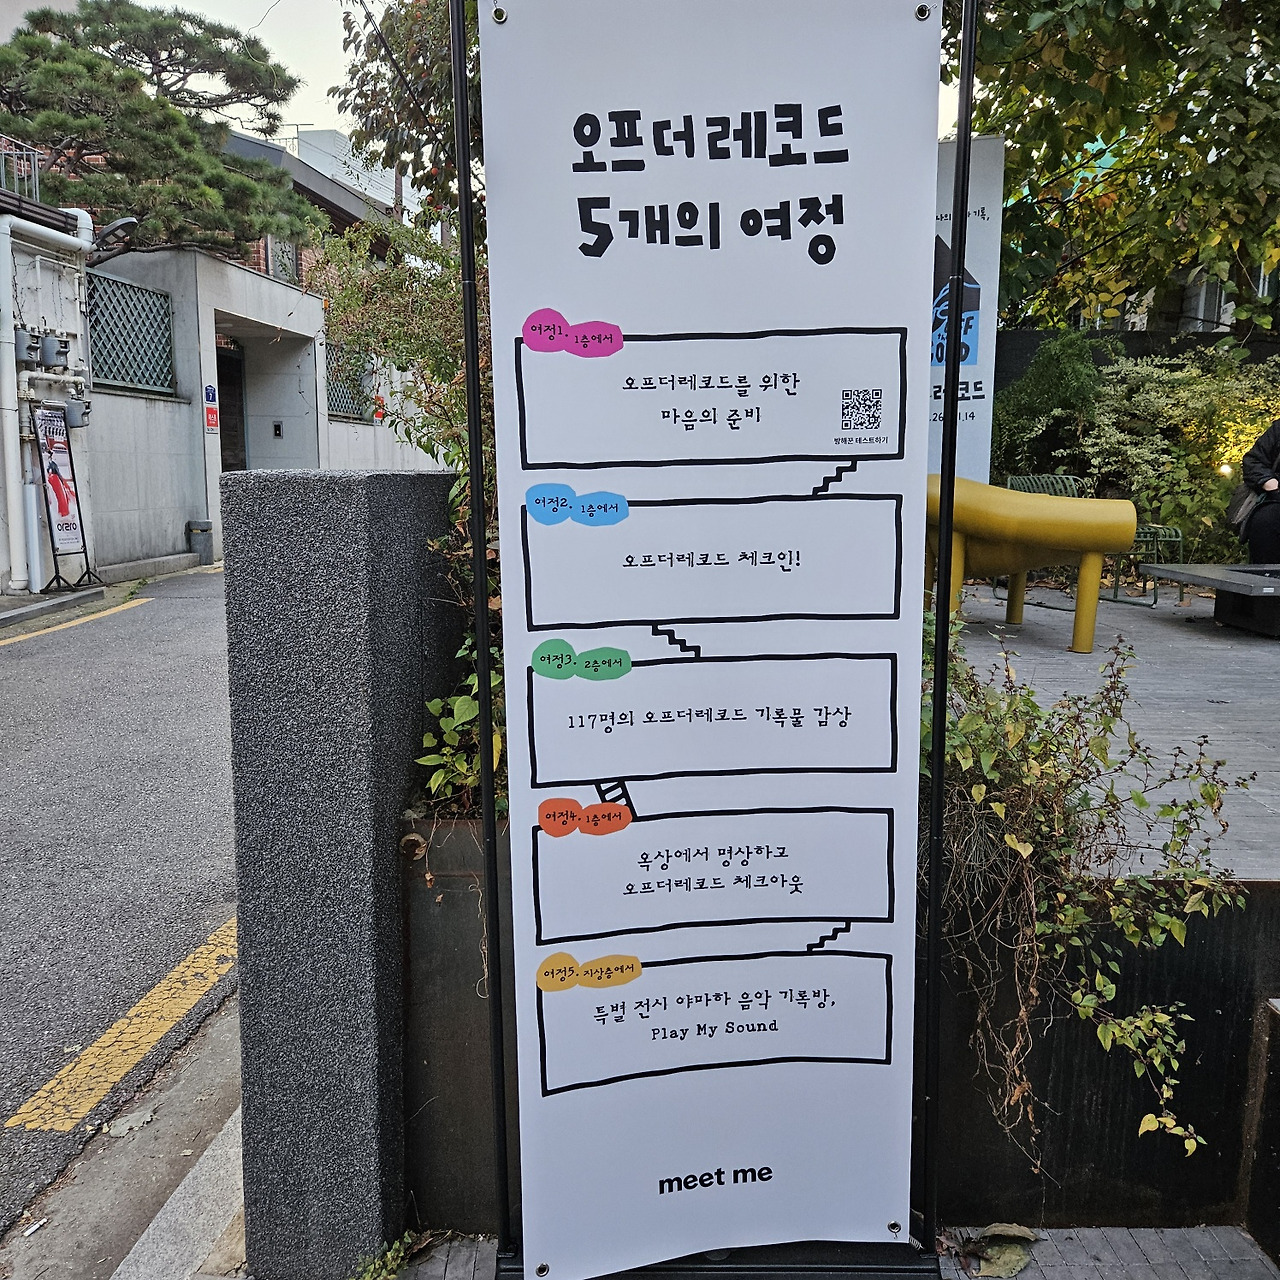 오프더레코드
5개의 여정
여정1. 1층에서
오프더레코드를 위한
마음의 준비
방해꾼 테스트하기
여정2. 1층에서
오프더레코드 체크인!
여정3. 2층에서
117명의 오프더레코드 기록물 감상
여정4. 1층에서
옥상에서 명상하고
오프더레코드 체크아웃
여정5. 지상층에서
특별 전시 야마하 음악 기록방,
Play My Sound
meet me
기록,
레코드